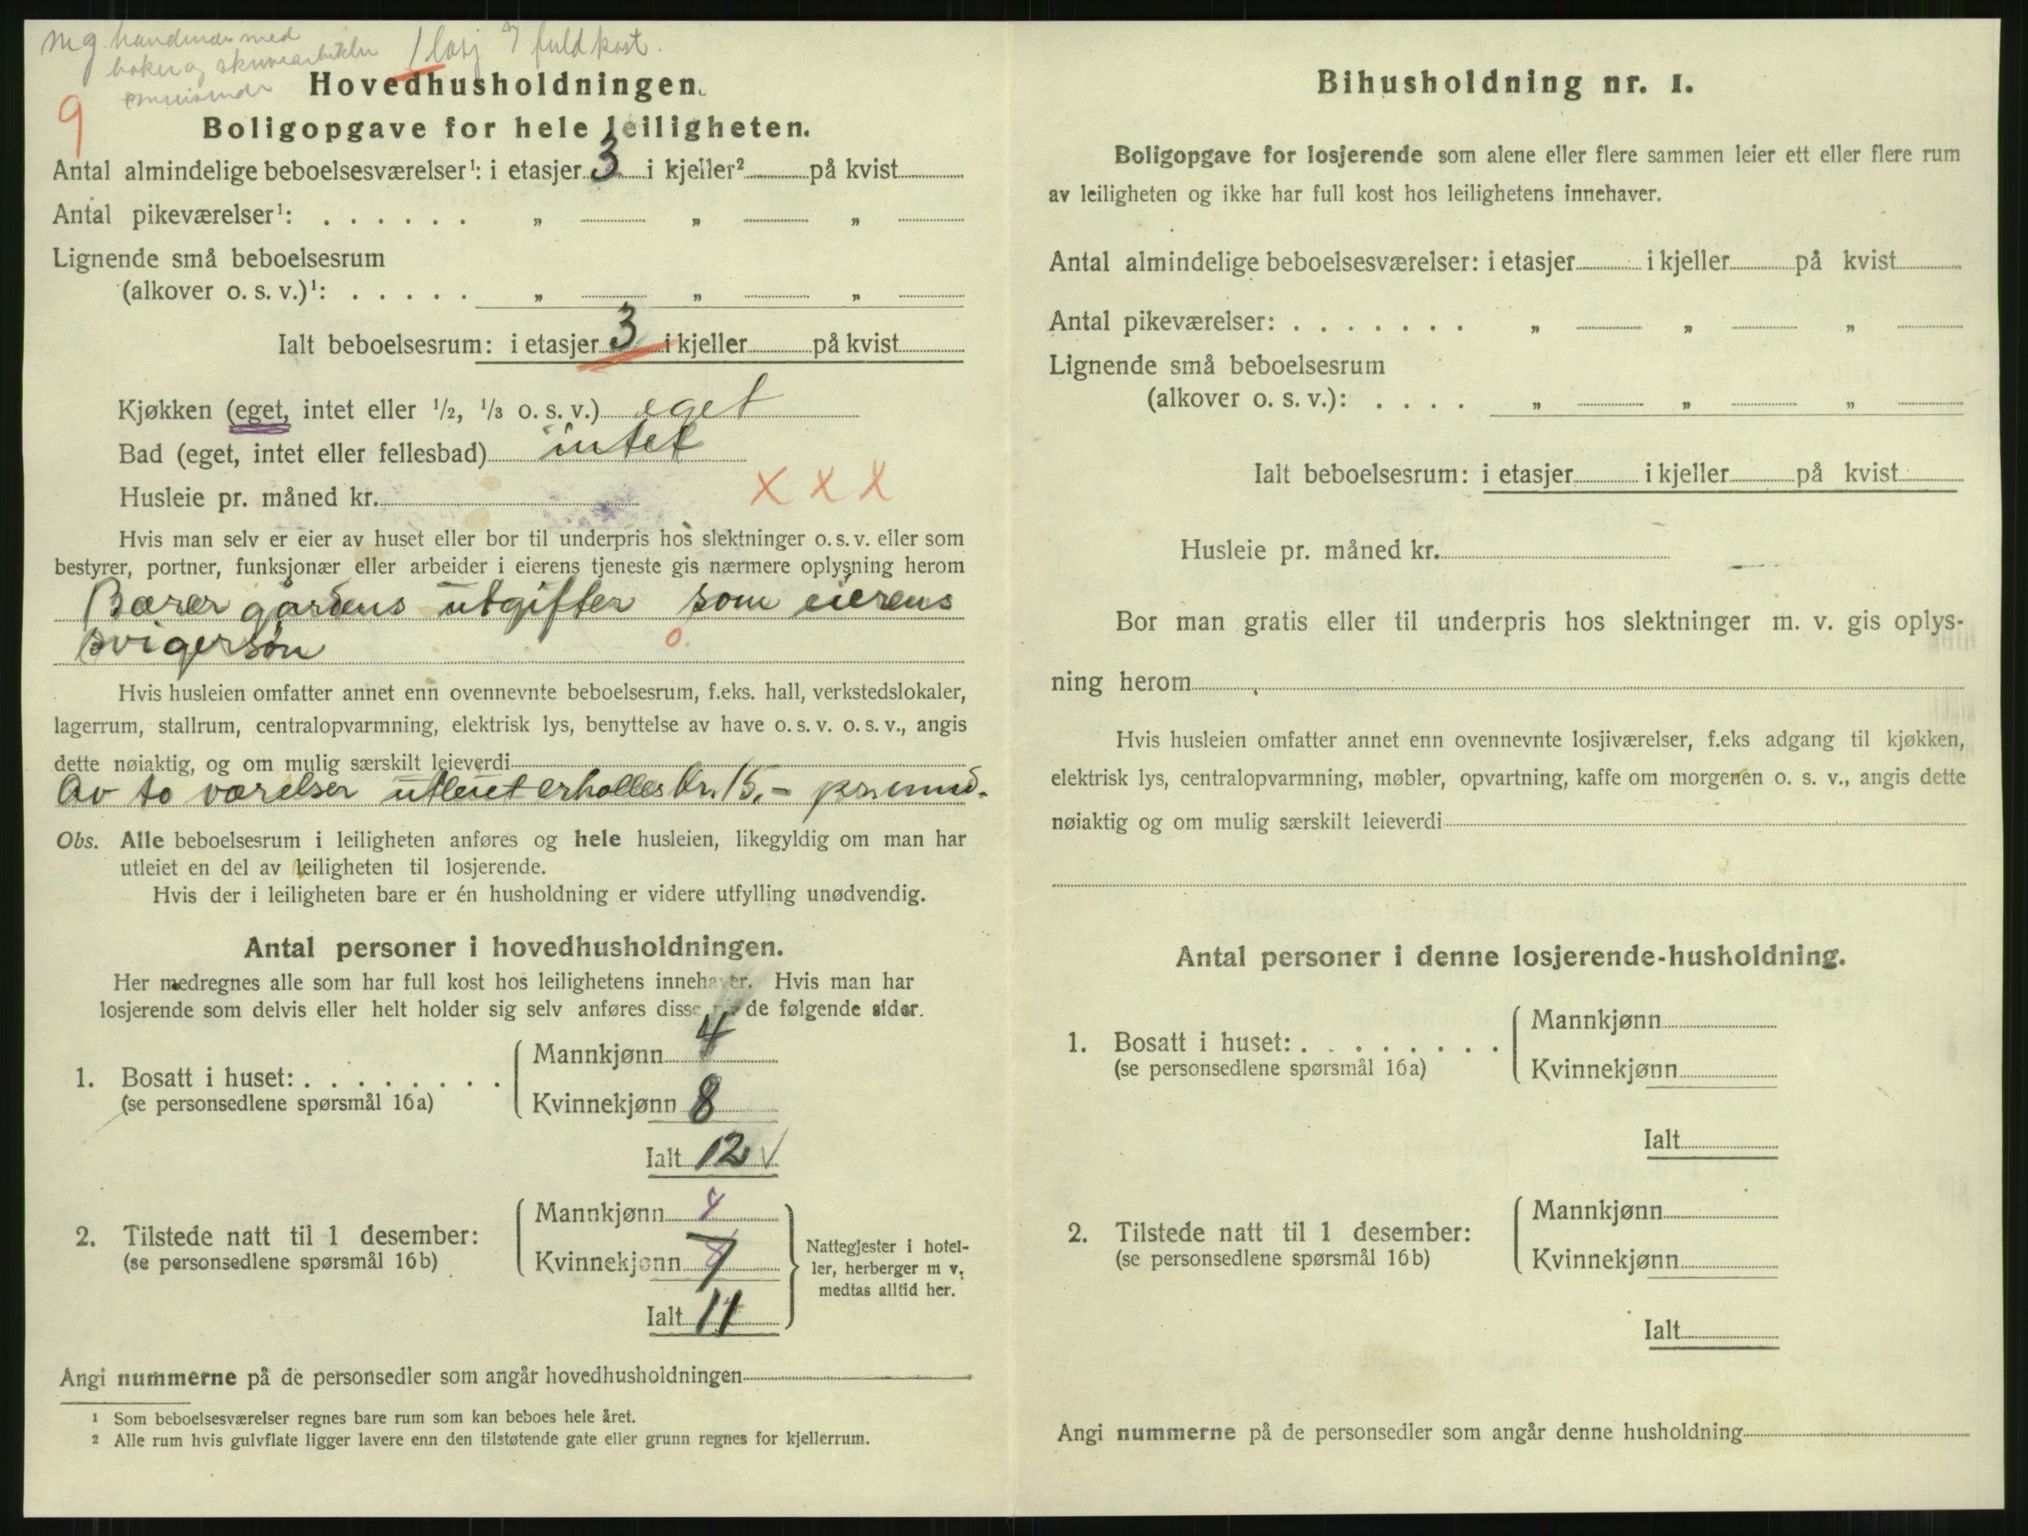 1 losj fuldkost.
9
Hovedhusholdningen.
Boligopgave for hele leiligheten.
Antal almindelige beboelsesværelser¹: i etasjer 3 i kjeller² på kvist
Antal pikeværelser¹: . . . . . . „ „ „
Lignende små beboelsesrum
(alkover o. s. v.)¹: . . . . . „ „ „
Ialt beboelsesrum: i etasjer 3 i kjeller på kvist
Kjøkken (eget, intet eller 1/2, 1/3 o. s. v.) eget
Bad (eget, intet eller fellesbad) intet
Husleie pr. måned kr. x x x
Hvis man selv er eier av huset eller bor til underpris hos slektninger o. s. v. eller som
bestyrer, portner, funksjonær eller arbeider i eierens tjeneste gis nærmere oplysning herom
Bærer gårdens utgifter som eierens
svigersøn o.
Hvis husleien omfatter annet enn ovennevnte beboelsesrum, f.eks. hall, verkstedslokaler,
lagerrum, stallrum, centralopvarmning, elektrisk lys, benyttelse av have o. s. v. o. s. v., angis
dette nøiaktig, og om mulig særskilt leieverdi
Av to værelser utleiet erholles kr. 15.- pr. mnd.
Obs. Alle beboelsesrum i leiligheten anføres og hele husleien, likegyldig om man har
utleiet en del av leiligheten til losjerende.
Hvis der i leiligheten bare er én husholdning er videre utfylling unødvendig.
Antal personer i hovedhusholdningen.
Her medregnes alle som har full kost hos leilighetens innehaver. Hvis man har
losjerende som delvis eller helt holder sig selv anføres disse på de følgende sider.
1. Bosatt i huset: . . . . . . . .
(se personsedlene spørsmål 16a)
Mannkjønn 4
Kvinnekjønn 8
Ialt 12 √
2. Tilstede natt til 1 desember:
(se personsedlene spørsmål 16b)
Mannkjønn 4
Kvinnekjønn 7
Ialt 11
Nattegjester i hotel-
ler, herberger m v.
medtas alltid her.
Angi nummerne på de personsedler som angår hovedhusholdningen
¹ Som beboelsesværelser regnes bare rum som kan beboes hele året.
² Alle rum hvis gulvflate ligger lavere enn den tilstøtende gate eller grunn regnes for kjellerrum.
Bihusholdning nr. 1.
Boligopgave for losjerende som alene eller flere sammen leier ett eller flere rum
av leiligheten og ikke har full kost hos leilighetens innehaver.
Antal almindelige beboelsesværelser: i etasjer i kjeller på kvist
Antal pikeværelser: . . . . . . . „ „ „
Lignende små beboelsesrum
(alkover o. s. v.): . . . . „ „ „
Ialt beboelsesrum: i etasjer i kjeller på kvist
Husleie pr. måned kr.
Bor man gratis eller til underpris hos slektninger m. v. gis oplys-
ning herom
Hvis husleien omfatter annet enn ovennevnte losjiværelser, f.eks adgang til kjøkken,
elektrisk lys, centralopvarmning, møbler, opvartning, kaffe om morgenen o. s. v., angis dette
nøiaktig og om mulig særskilt leieverdi
Antal personer i denne losjerende-husholdning.
1. Bosatt i huset: . . . . . . . .
(se personsedlene spørsmål 16a)
Mannkjønn
Kvinnekjønn
Ialt
2. Tilstede natt til 1 desember:
(se personsedlene spørsmål 16b)
Mannkjønn
Kvinnekjønn
Ialt
Angi nummerne på de personsedler som angår denne husholdning